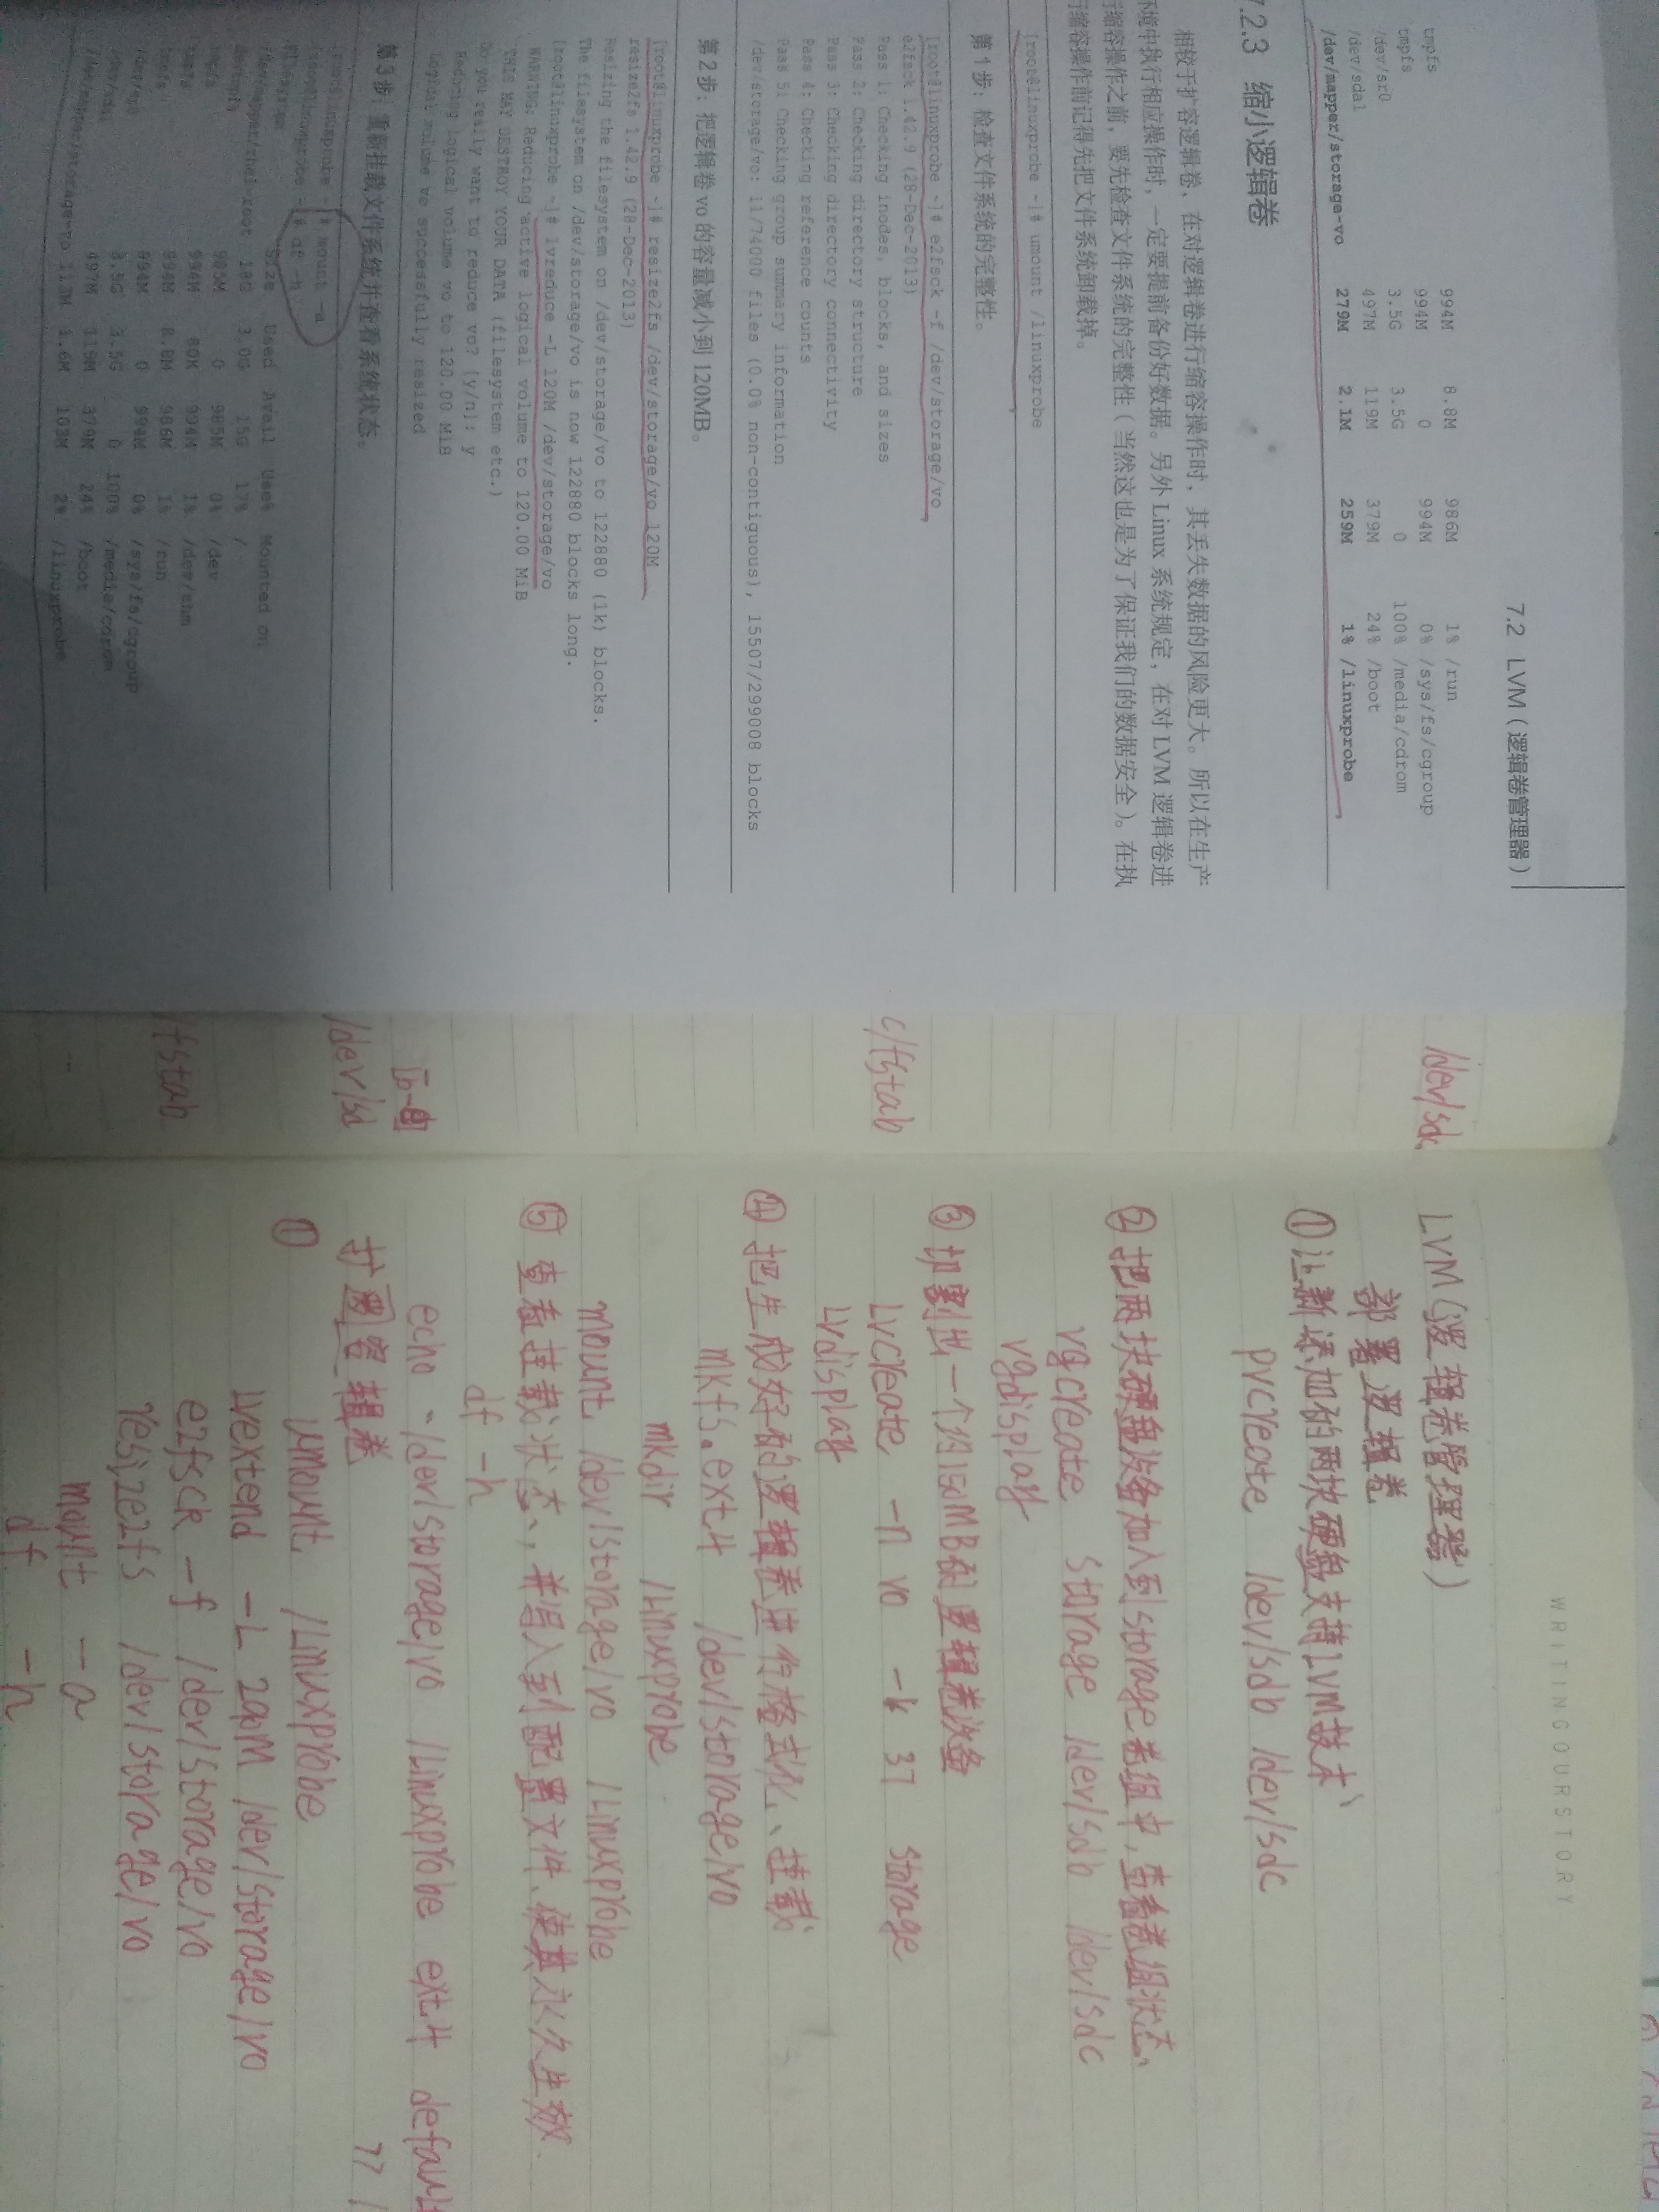 7.2 LVM（逻辑卷管理器）
tmpfs 994M 8.8M 986M 1% /run
tmpfs 994M 0 994M 0% /sys/fs/cgroup
/dev/sr0 3.5G 3.5G 0 100% /media/cdrom
/dev/sda1 497M 119M 379M 24% /boot
/dev/mapper/storage-vo 279M 2.1M 259M 1% /linuxprobe
7.2.3 缩小逻辑卷
相较于扩容逻辑卷，在对逻辑卷进行缩容操作时，其丢失数据的风险更大。所以在生产
环境中执行相应操作时，一定要提前备份好数据。另外 Linux 系统规定，在对 LVM 逻辑卷进
行缩容操作之前，要先检查文件系统的完整性（当然这也是为了保证我们的数据安全）。在执
行缩容操作前记得先把文件系统卸载掉。
[root@linuxprobe ~]# umount /linuxprobe
第 1 步：检查文件系统的完整性。
[root@linuxprobe ~]# e2fsck -f /dev/storage/vo
e2fsck 1.42.9 (28-Dec-2013)
Pass 1: Checking inodes, blocks, and sizes
Pass 2: Checking directory structure
Pass 3: Checking directory connectivity
Pass 4: Checking reference counts
Pass 5: Checking group summary information
/dev/storage/vo: 11/74000 files (0.0% non-contiguous), 15507/299008 blocks
第 2 步：把逻辑卷 vo 的容量减小到 120MB。
[root@linuxprobe ~]# resize2fs /dev/storage/vo 120M
resize2fs 1.42.9 (28-Dec-2013)
Resizing the filesystem on /dev/storage/vo to 122880 (1k) blocks.
The filesystem on /dev/storage/vo is now 122880 blocks long.
[root@linuxprobe ~]# lvreduce -L 120M /dev/storage/vo
WARNING: Reducing active logical volume to 120.00 MiB
THIS MAY DESTROY YOUR DATA (filesystem etc.)
Do you really want to reduce vo? [y/n]: y
Reducing logical volume vo to 120.00 MiB
Logical volume vo successfully resized
第 3 步：重新挂载文件系统并查看系统状态。
[root@linuxprobe ~]# mount -a
[root@linuxprobe ~]# df -h
Filesystem Size Used Avail Use% Mounted on
/dev/mapper/rhel-root 18G 3.0G 15G 17% /
devtmpfs 985M 0 985M 0% /dev
tmpfs 994M 80K 994M 1% /dev/shm
tmpfs 994M 8.8M 986M 1% /run
tmpfs 994M 0 994M 0% /sys/fs/cgroup
/dev/sr0 3.5G 3.5G 0 100% /media/cdrom
/dev/sda1 497M 119M 379M 24% /boot
/dev/mapper/storage-vo 113M 1.6M 103M 2% /linuxprobe
/dev/sdc
c/fstab
/dev/sd
/fstab
WRITINGOURSTORY
LVM(逻辑卷管理器)
部署逻辑卷
① 让新添加的两块硬盘支持LVM技术
pvcreate /dev/sdb /dev/sdc
② 把两块硬盘设备加入到storage卷组中,查看卷组状态
vgcreate storage /dev/sdb /dev/sdc
vgdisplay
③ 切割出一个约150MB的逻辑卷设备
Lvcreate -n vo -l 37 storage
Lvdisplay
④ 把生成好的逻辑卷进行格式化、挂载
mkfs.ext4 /dev/storage/vo
mkdir /Linuxprobe
mount /dev/storage/vo /Linuxprobe
⑤ 查看挂载状态,并写入到配置文件、使其永久生效
df -h
echo "/dev/storage/vo /Linuxprobe ext4 default
扩容逻辑卷
① umount /Linuxprobe
Lvextend -L 290M /dev/storage/vo
e2fsck -f /dev/storage/vo
resize2fs /dev/storage/vo
mount -a
df -h